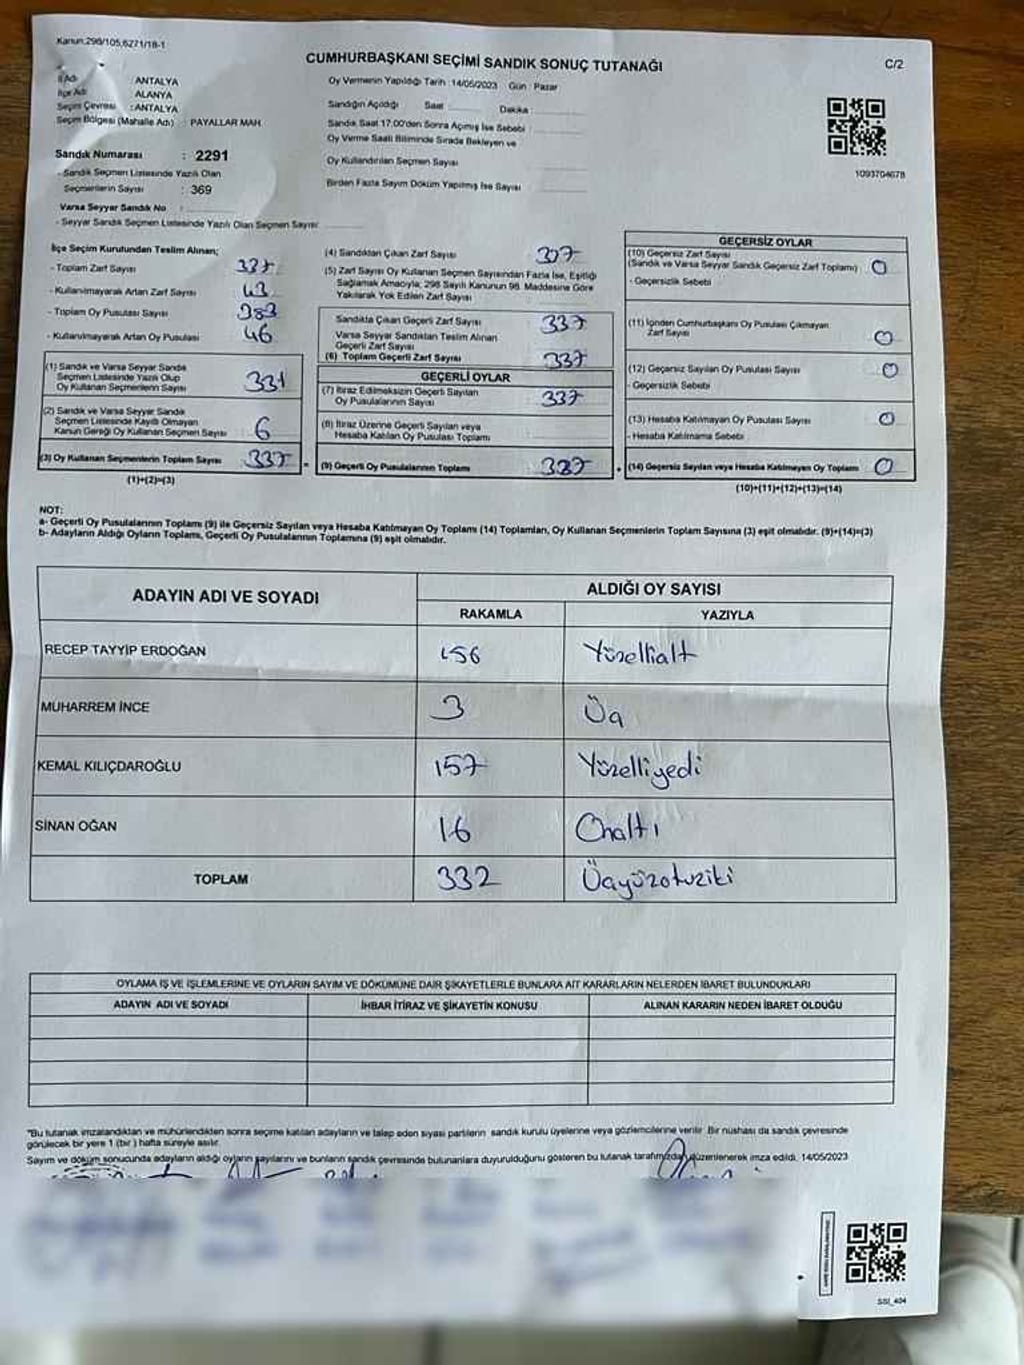 Kanun:298/105,6271/18-1
CUMHURBAŞKANI SEÇİMİ SANDIK SONUÇ TUTANAĞI
C/2
İl Adı : ANTALYA
İlçe Adı : ALANYA
Seçim Çevresi : ANTALYA
Seçim Bölgesi (Mahalle Adı) : PAYALLAR MAH.
Sandık Numarası : 2291
- Sandık Seçmen Listesinde Yazılı Olan
Seçmenlerin Sayısı : 369
Varsa Seyyar Sandık No :
- Seyyar Sandık Seçmen Listesinde Yazılı Olan Seçmen Sayısı:
Oy Vermenin Yapıldığı Tarih : 14/05/2023 Gün : Pazar
Sandığın Açıldığı Saat Dakika :
Sandık Saat 17:00'den Sonra Açılmış İse Sebebi
Oy Verme Saati Bitiminde Sırada Bekleyen ve
Oy Kullandırılan Seçmen Sayısı
Birden Fazla Sayım Döküm Yapılmış İse Sayısı
1093704678
İlçe Seçim Kurulundan Teslim Alınan;
- Toplam Zarf Sayısı 337
- Kullanılmayarak Artan Zarf Sayısı 43
- Toplam Oy Pusulası Sayısı 383
- Kullanılmayarak Artan Oy Pusulası 46
(1) Sandık ve Varsa Seyyar Sandık
Seçmen Listesinde Yazılı Olup
Oy Kullanan Seçmenlerin Sayısı 331
(2) Sandık ve Varsa Seyyar Sandık
Seçmen Listesinde Kayıtlı Olmayan
Kanun Gereği Oy Kullanan Seçmen Sayısı 6
(3) Oy Kullanan Seçmenlerin Toplam Sayısı 337
(1)+(2)=(3)
(4) Sandıktan Çıkan Zarf Sayısı 337
(5) Zarf Sayısı Oy Kullanan Seçmen Sayısından Fazla İse, Eşitliği
Sağlamak Amacıyla, 298 Sayılı Kanunun 98. Maddesine Göre
Yakılarak Yok Edilen Zarf Sayısı
Sandıkta Çıkan Geçerli Zarf Sayısı 337
Varsa Seyyar Sandıktan Teslim Alınan
Geçerli Zarf Sayısı
(6) Toplam Geçerli Zarf Sayısı 337
GEÇERLİ OYLAR
(7) İtiraz Edilmeksizin Geçerli Sayılan
Oy Pusulalarının Sayısı 337
(8) İtiraz Üzerine Geçerli Sayılan veya
Hesaba Katılan Oy Pusulası Toplamı
(9) Geçerli Oy Pusulalarının Toplamı 337
GEÇERSİZ OYLAR
(10) Geçersiz Zarf Sayısı
(Sandık ve Varsa Seyyar Sandık Geçersiz Zarf Toplamı) 0
- Geçersizlik Sebebi
(11) İçinden Cumhurbaşkanı Oy Pusulası Çıkmayan
Zarf Sayısı 0
(12) Geçersiz Sayılan Oy Pusulası Sayısı 0
- Geçersizlik Sebebi
(13) Hesaba Katılmayan Oy Pusulası Sayısı 0
- Hesaba Katılmama Sebebi
(14) Geçersiz Sayılan veya Hesaba Katılmayan Oy Toplamı 0
(10)+(11)+(12)+(13)=(14)
NOT:
a- Geçerli Oy Pusulalarının Toplamı (9) ile Geçersiz Sayılan veya Hesaba Katılmayan Oy Toplamı (14) Toplamları, Oy Kullanan Seçmenlerin Toplam Sayısına (3) eşit olmalıdır. (9)+(14)=(3)
b- Adayların Aldığı Oyların Toplamı, Geçerli Oy Pusulalarının Toplamına (9) eşit olmalıdır.
ADAYIN ADI VE SOYADI
ALDIĞI OY SAYISI
RAKAMLA YAZIYLA
RECEP TAYYİP ERDOĞAN 156 Yüzellialt
MUHARREM İNCE 3 Üç
KEMAL KILIÇDAROĞLU 157 Yüzelliyedi
SİNAN OĞAN 16 Onaltı
TOPLAM 332 Üçyüzotuziki
OYLAMA İŞ VE İŞLEMLERİNE VE OYLARIN SAYIM VE DÖKÜMÜNE DAİR ŞİKAYETLERLE BUNLARA AİT KARARLARIN NELERDEN İBARET BULUNDUKLARI
ADAYIN ADI VE SOYADI İHBAR İTİRAZ VE ŞİKAYETİN KONUSU ALINAN KARARIN NEDEN İBARET OLDUĞU
"Bu tutanak imzalandıktan ve mühürlendikten sonra seçime katılan adayların ve talep eden siyasi partilerin sandık kurulu üyelerine veya gözlemcilerine verilir. Bir nüshası da sandık çevresinde
görülecek bir yere 1 (bir) hafta süreyle asılır.
Sayım ve döküm sonucunda adayların aldığı oyların sayılarını ve bunların sandık çevresinde bulunanlara duyurulduğunu gösteren bu tutanak tarafımızdan düzenlenerek imza edildi. 14/05/2023
SSİ_404